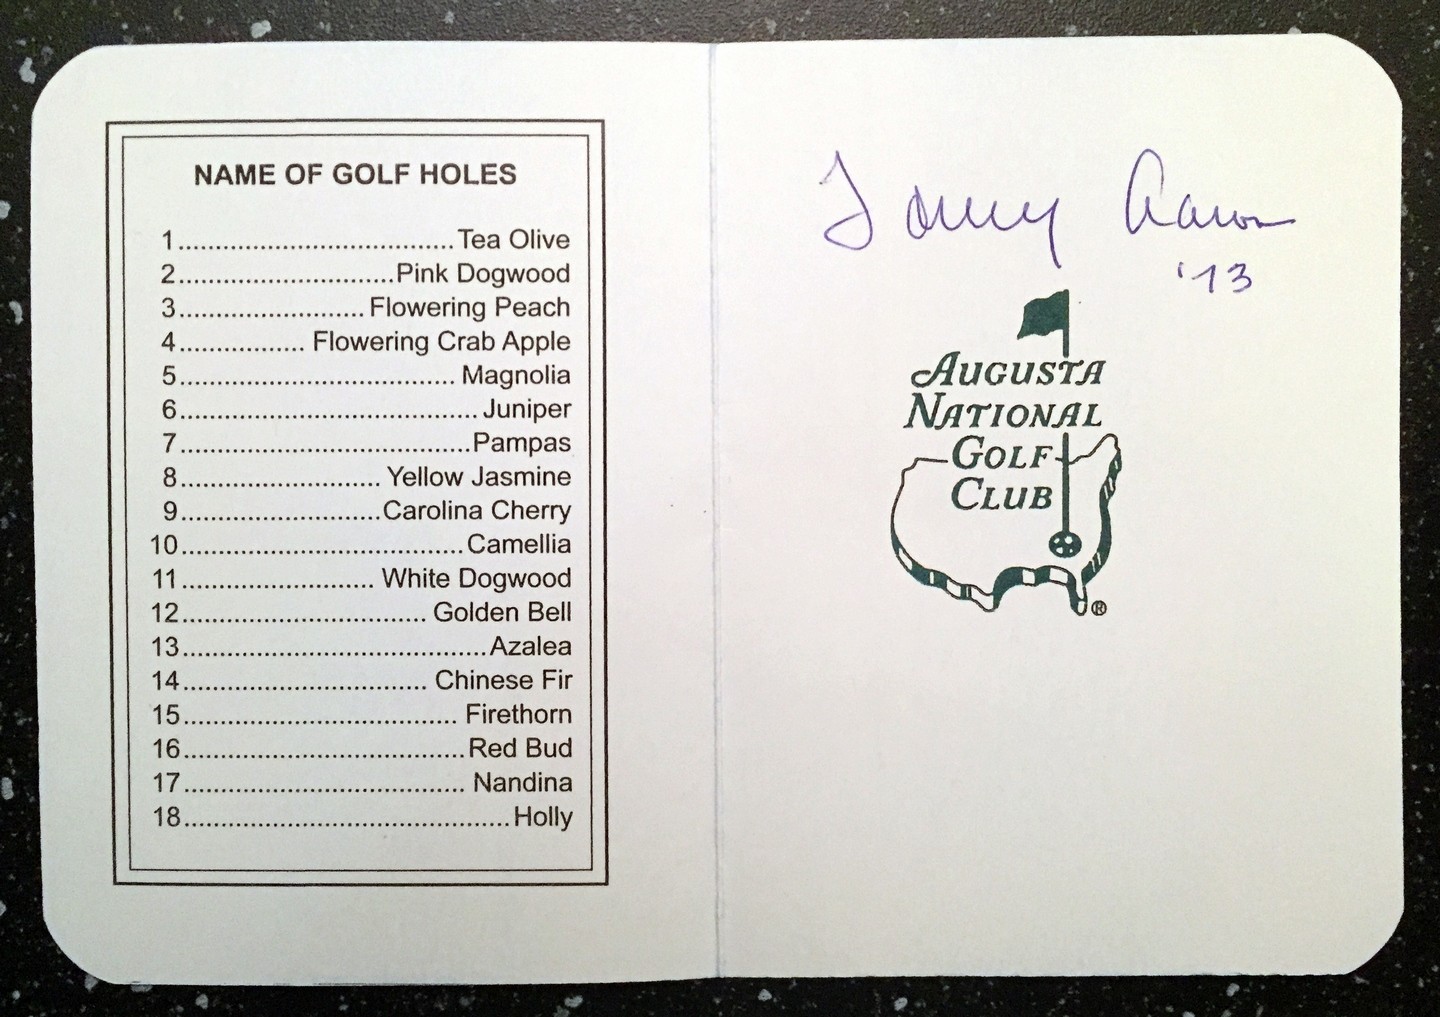 NAME OF GOLF HOLES
1....................................Tea Olive
2............................Pink Dogwood
3........................Flowering Peach
4................ Flowering Crab Apple
5.................................... Magnolia
6....................................... Juniper
7......................................Pampas
8.......................... Yellow Jasmine
9..........................Carolina Cherry
10.....................................Camellia
11......................... White Dogwood
12................................ Golden Bell
13........................................Azalea
14................................ Chinese Fir
15.................................... Firethorn
16.....................................Red Bud
17..................................... Nandina
18...........................................Holly
Tommy Aaron
'73
AUGUSTA
NATIONAL
GOLF
CLUB
®